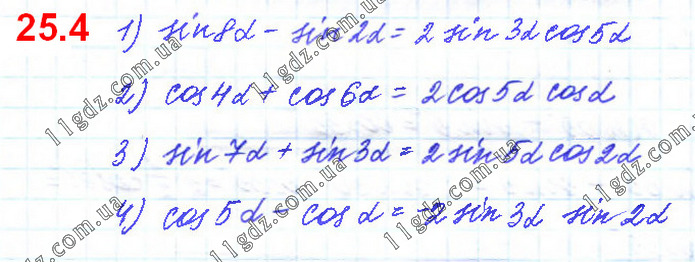 25.4 1) sin8α - sin2α = 2 sin3α cos5α
2) cos4α + cos6α = 2cos5α cosα
3) sin7α + sin3α = 2sin5α cos2α
4) cos5α - cosα = -2sin3α sin2α
11gdz.com.ua
11gdz.com.ua
11gdz.com.ua
11gdz.com.ua
11gdz.com.ua
11gdz.com.ua